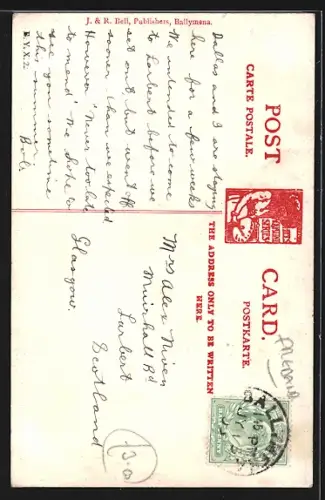 J. & R. Bell, Publishers, Ballymena.
POST
CARD.
CARTE POSTALE.
POSTKARTE.
THE ADDRESS ONLY TO BE WRITTEN
HERE.
Dallas and I are staying
here for a few weeks
We intended to come
to Larbert before we
set out but went off
sooner than we expected
However "Never too late
to mend" We hope to
see you sometime
this summer
Mrs Alex Niven
Muirhall Rd
Larbert
Glasgow.
Scotland